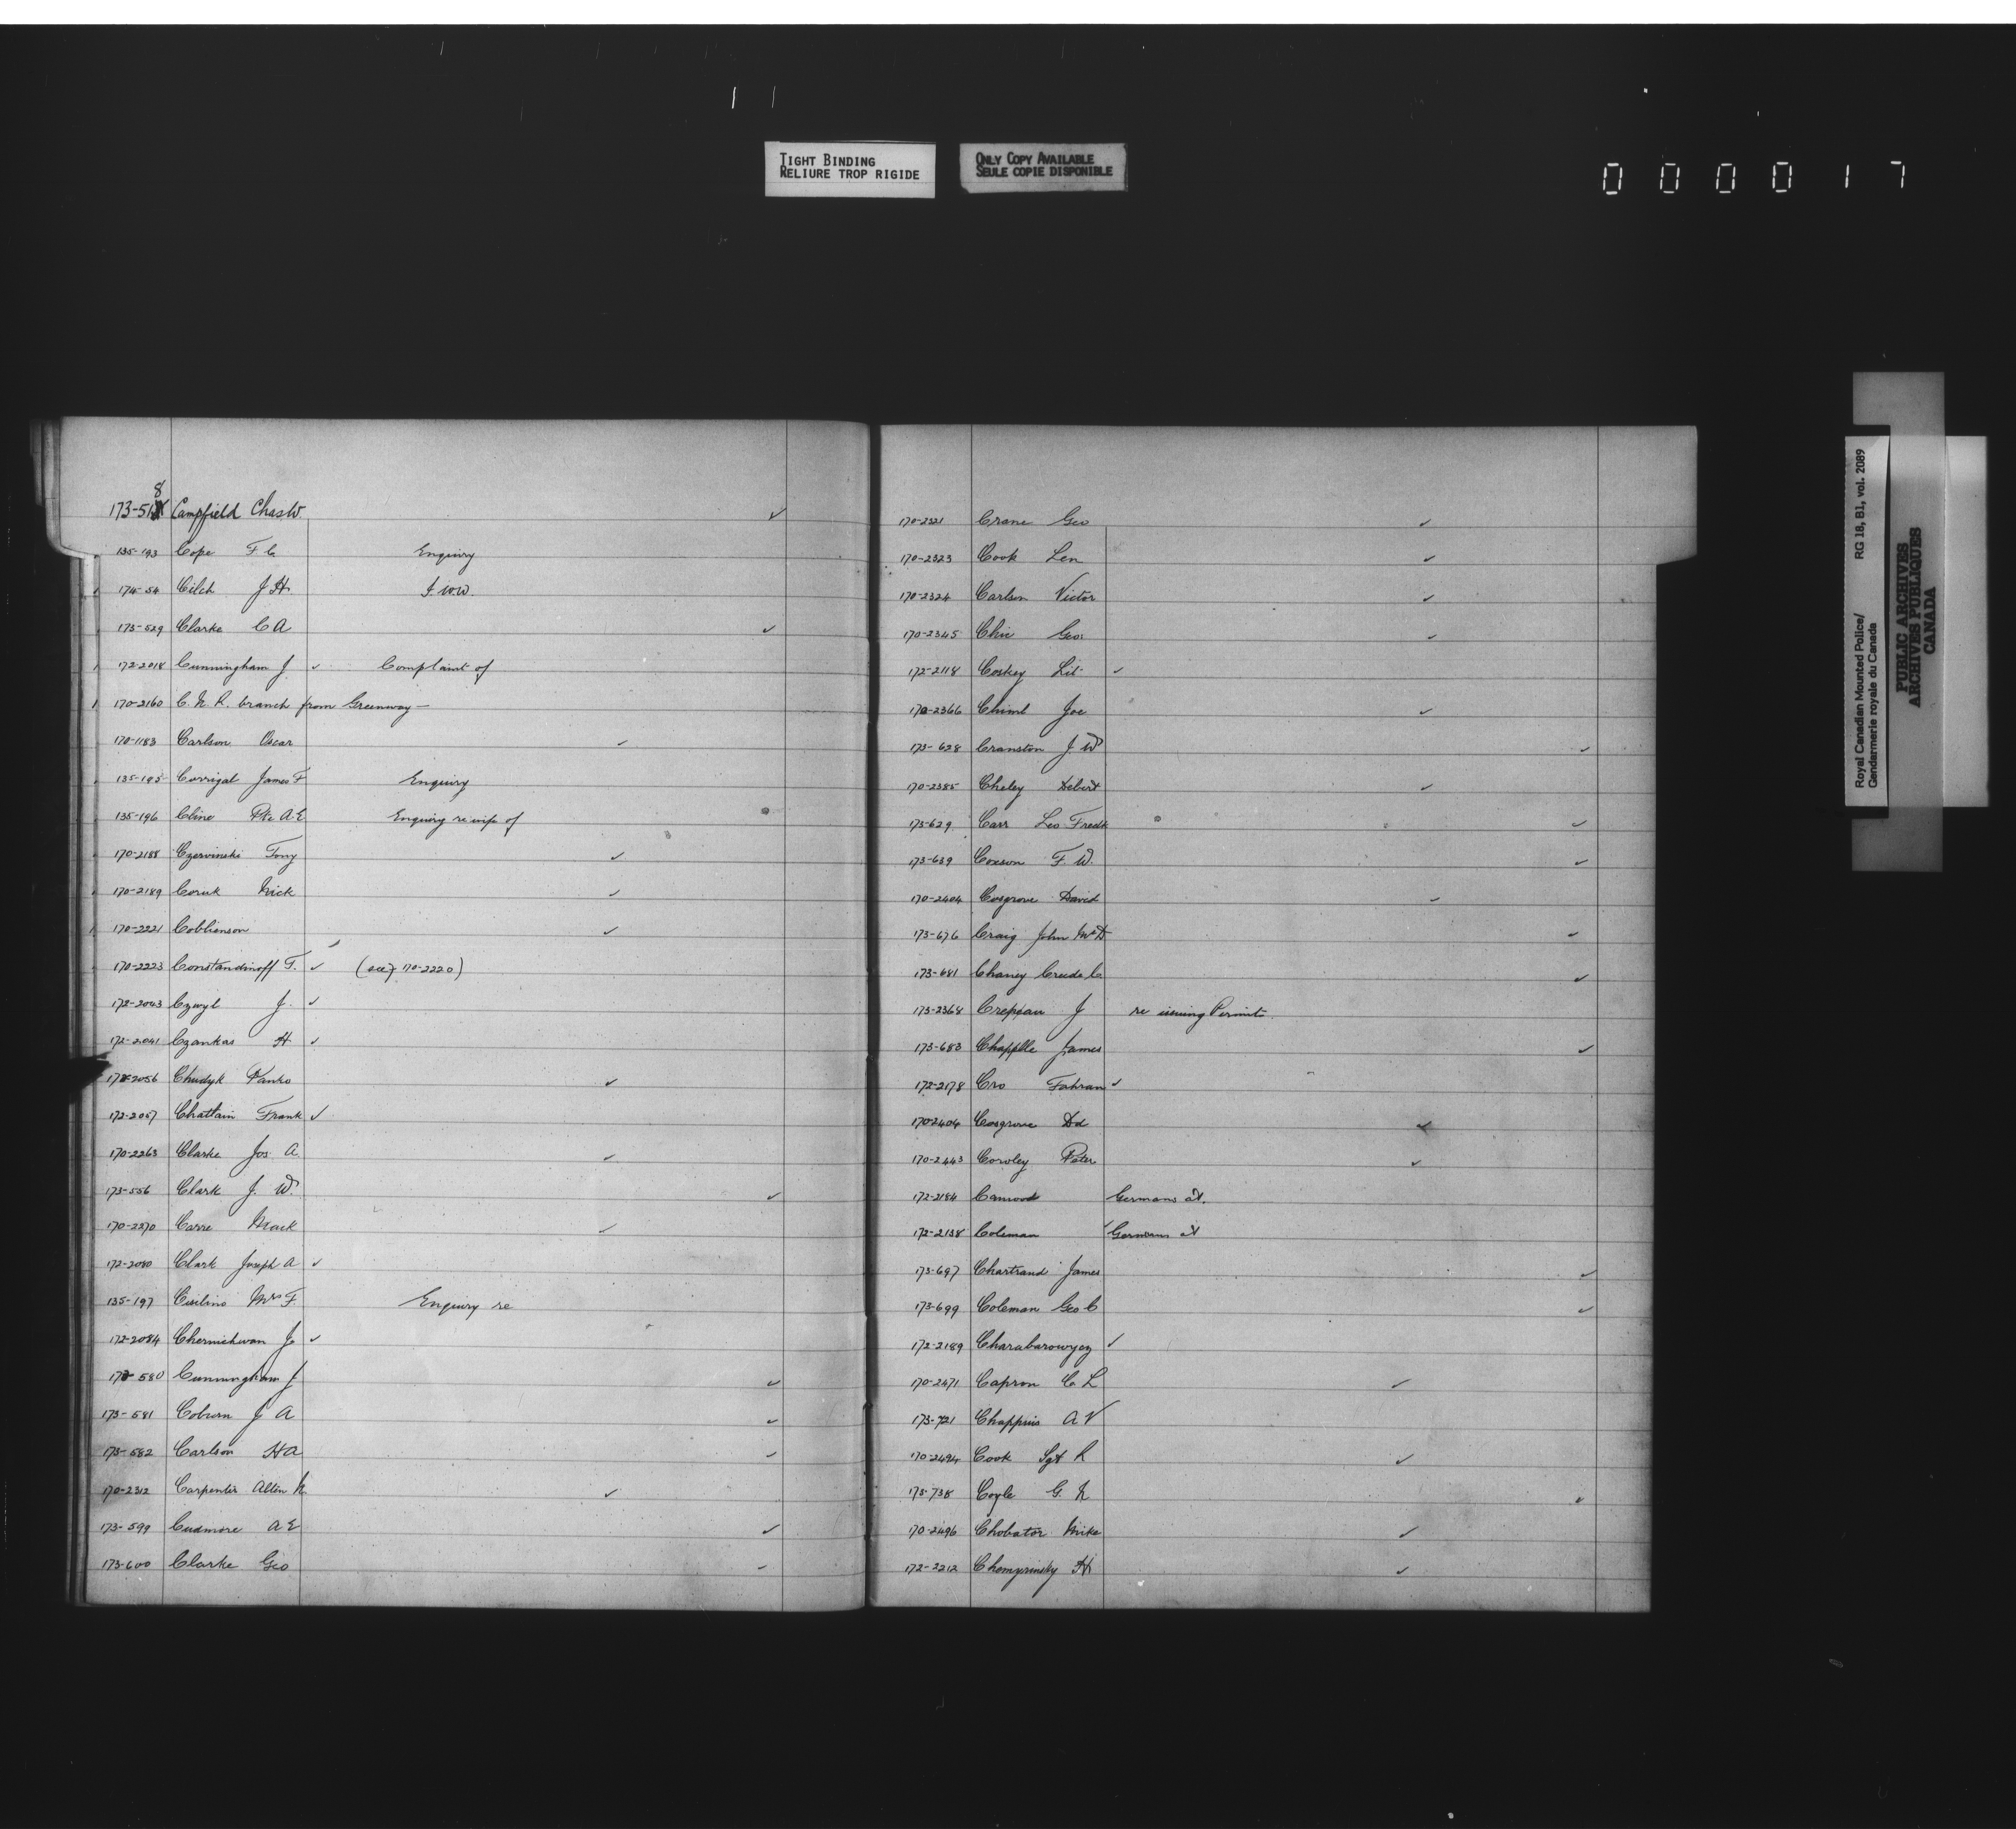 TIGHT BINDING
RELIURE TROP RIGIDE
ONLY COPY AVAILABLE
SEULE COPIE DISPONIBLE
000017
8
173-51 Campfield Chas W. ✓
135-193 Cope F C Enquiry
174-54 Cilch J H I.W.W.
173-529 Clarke C A ✓
172-2018 Cunningham J. ✓ Complaint of
170-2160 C.N.R. branch from Greenway —
170-1183 Carlson Oscar ✓
135-195 Corrigal James F Enquiry
135-196 Cline Pte A E Enquiry re wife of
170-2188 Czervinski Tony ✓
170-2189 Coruk Nick ✓
170-2221 Cobblienson ✓
170-2223 Constandinoff T. ✓ (see 170-2220)
172-2043 Czwyl J. ✓
172-2041 Czankas H ✓
172-2056 Chudyk Panko ✓
172-2057 Chattain Frank ✓
170-2263 Clarke Jos A. ✓
173-556 Clark J. W. ✓
170-2270 Carre Mack ✓
172-2080 Clark Joseph A ✓
135-197 Cisilino Mrs F. Enquiry re
172-2084 Chernichwan J. ✓
173-580 Cunningham J ✓
173-581 Coburn J A ✓
173-582 Carlson H A ✓
170-2312 Carpenter Alten N ✓
173-599 Cudmore A E ✓
173-600 Clarke Geo ✓
170-2321 Crane Geo ✓
170-2323 Cook Len ✓
170-2324 Carlson Victor ✓
170-2345 Chic Geo. ✓
172-2118 Coskey Lit ✓
170-2366 Chiml Joe ✓
173-628 Cranston J. W ✓
170-2385 Cheley Debert ✓
173-629 Carr Leo Fredk ✓
173-639 Coxson F. W. ✓
170-2404 Cosgrove David ✓
173-676 Craig John McD ✓
173-681 Chaney Creede C. ✓
173-2368 Crepeau J re issuing Permits.
173-683 Chapplle James ✓
172-2178 Cro Fahran ✓
170-2404 Cosgrove Dd ✓
170-2443 Coroley Peter ✓
172-2184 Camood Germans at.
172-2138 Coleman ✓ Germans at
173-697 Chartrand James ✓
173-699 Coleman Geo C ✓
172-2189 Charabarowycz ✓
170-2471 Capron C. L ✓
173-721 Chappius A V
170-2494 Cook Sgt R ✓
173-738 Coyle G. N ✓
170-2496 Chobator Mike ✓
172-2212 Chomyrinsky H ✓
Royal Canadian Mounted Police/ RG 18, B1, vol. 2089
Gendarmerie royale du Canada
PUBLIC ARCHIVES
ARCHIVES PUBLIQUES
CANADA